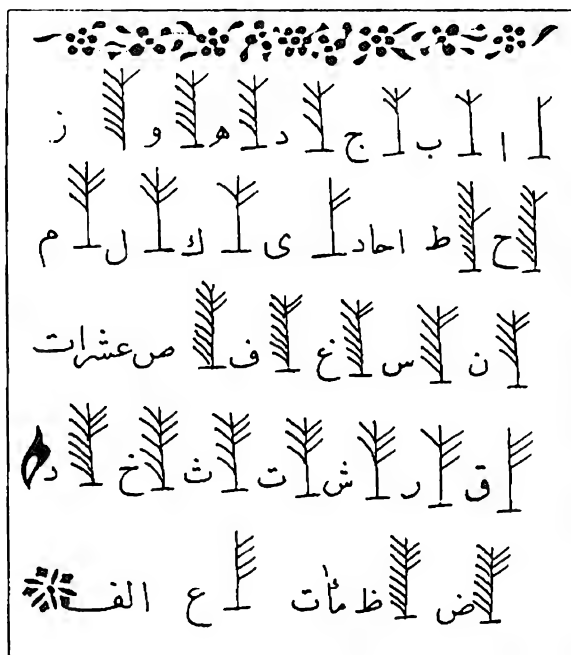 ا ب ج د ه و ز
ح ط احاد ى ك ل م
ن س غ ف ص عشرات
ق ر ش ت ث خ د
ض ظ مأات ع الف